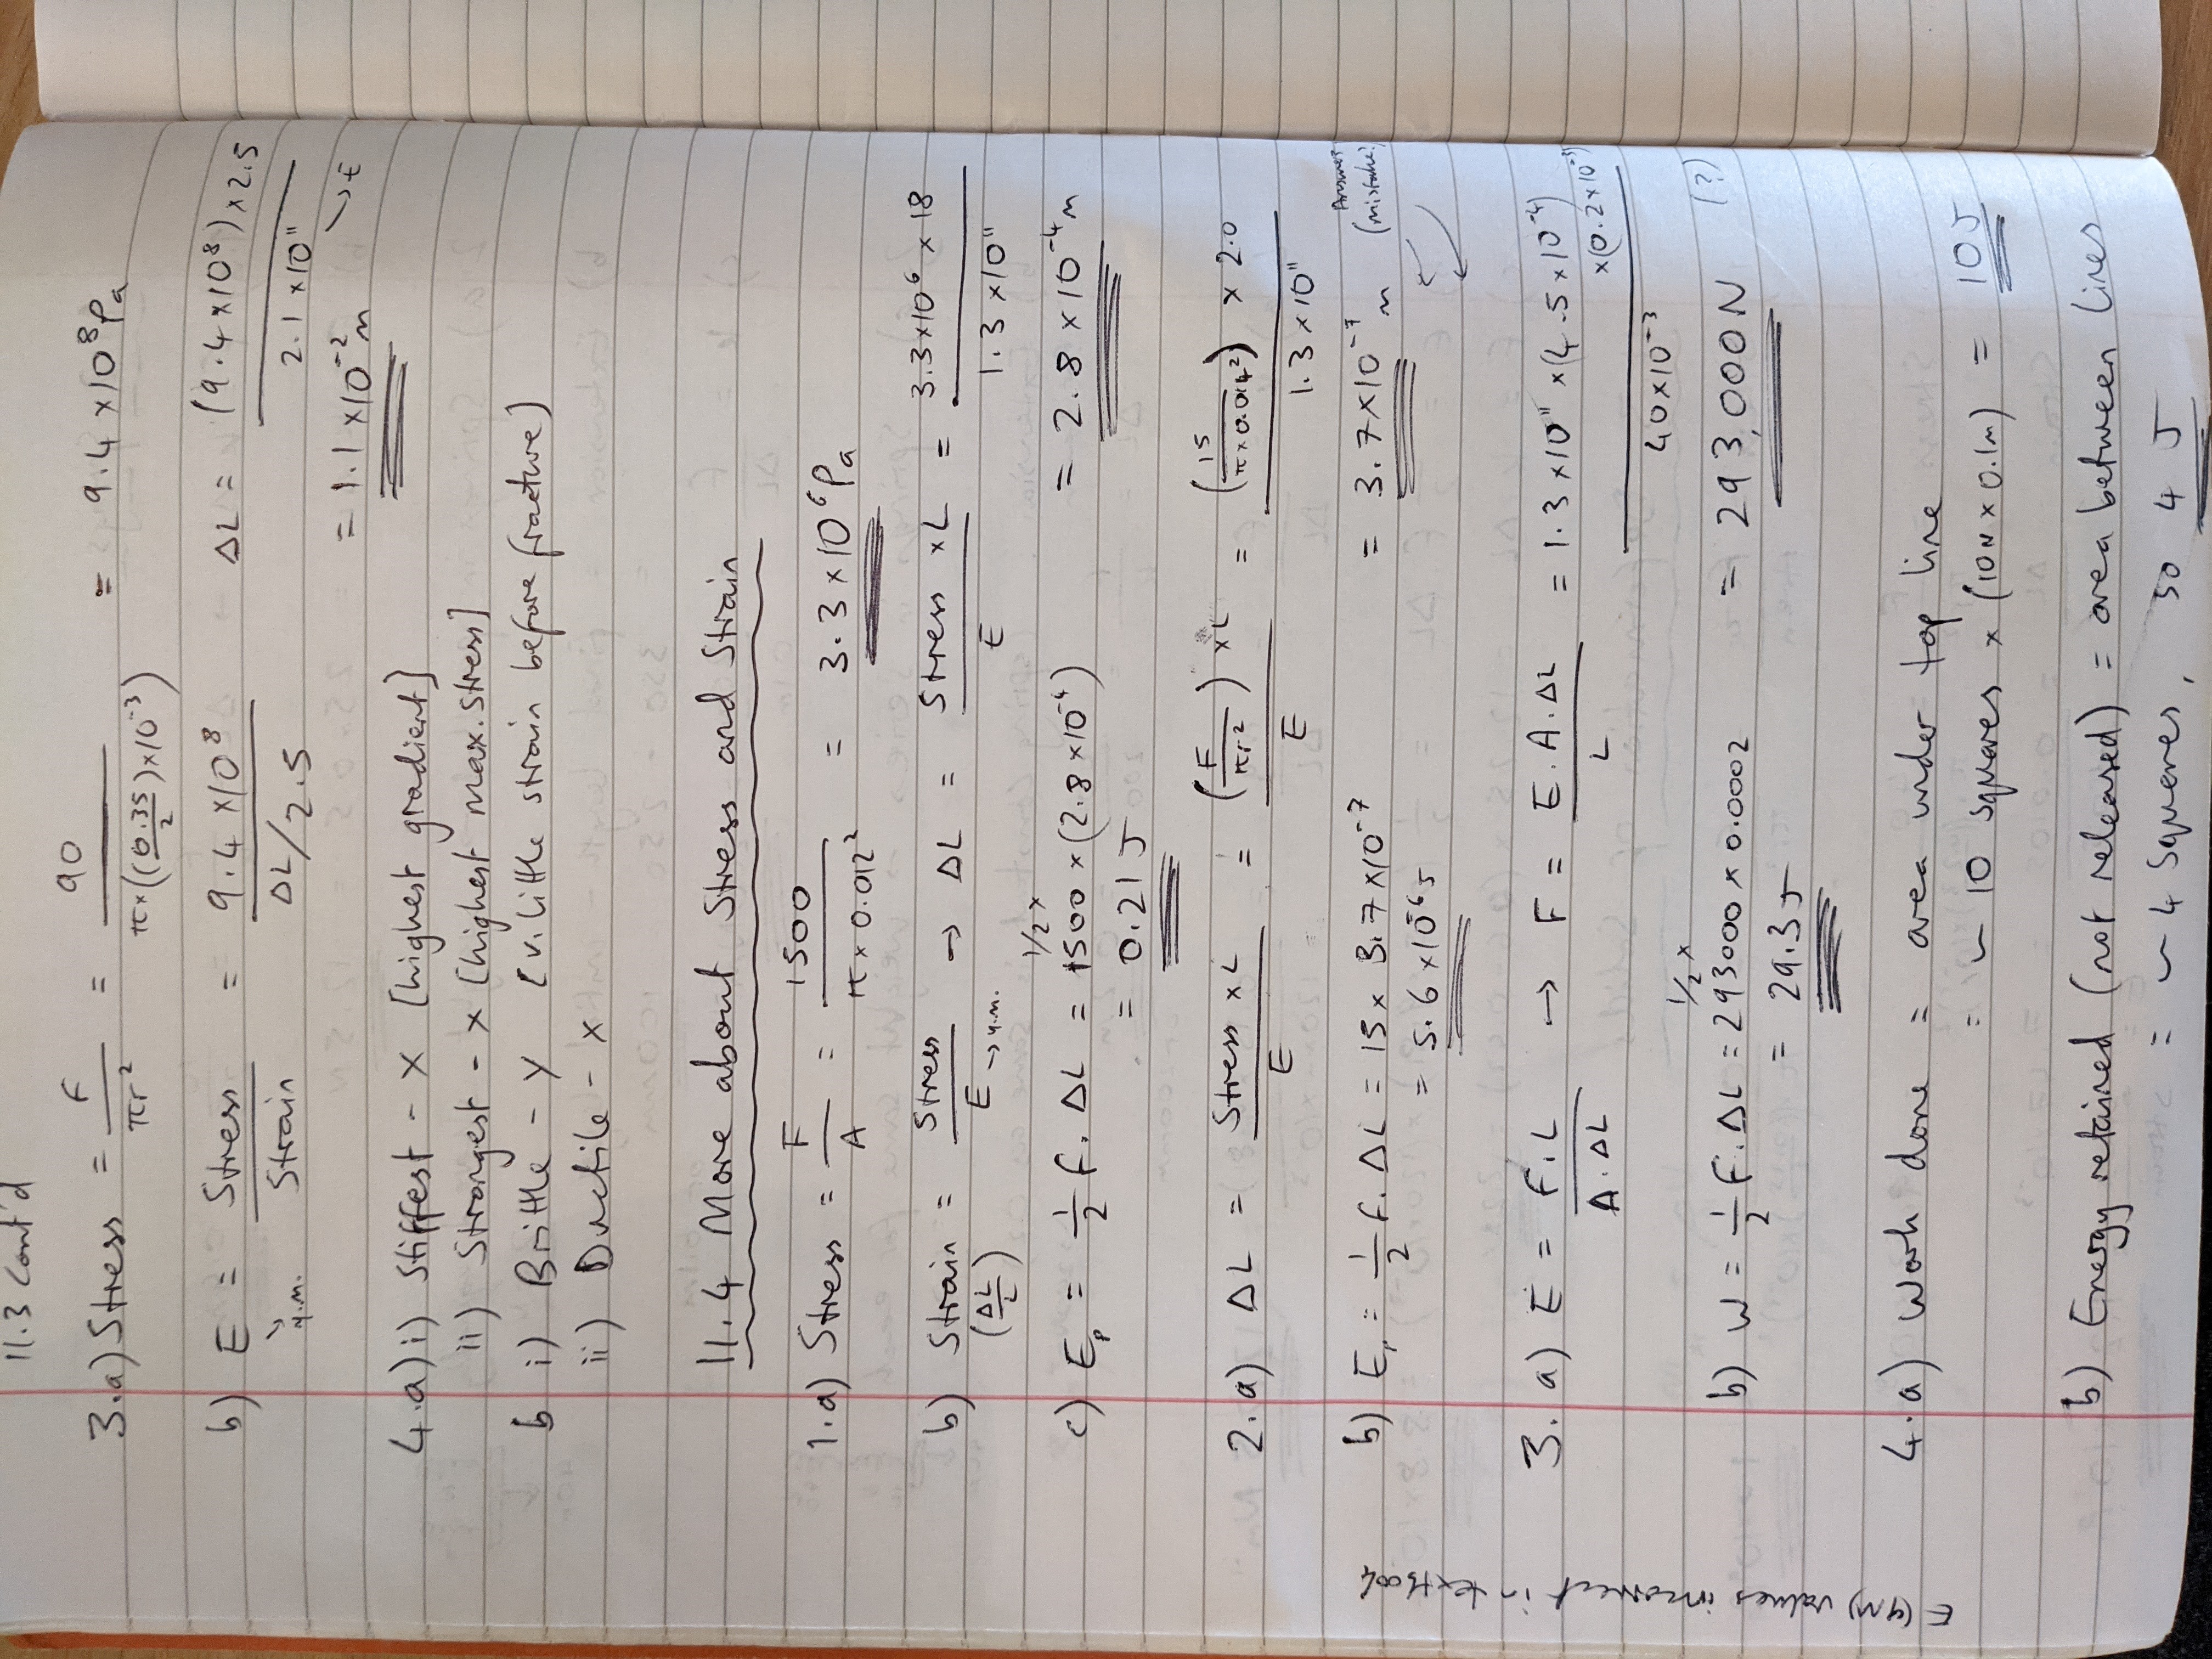 11.3 Cont'd
3.a) Stress = F/πr² = 90/π×((0.35/2)×10⁻³) = 9.4 × 10⁸ Pa
b) E = Stress/Strain = 9.4 × 10⁸/ΔL/2.5 ΔL = (9.4×10⁸)×2.5/2.1×10¹¹ → E
↘ y.m.
= 1.1 × 10⁻² m
4.a) i) Stiffest - X [highest gradient]
ii) Strongest - X [highest max. stress]
b i) Brittle - Y [v. little strain before fracture]
ii) Ductile - X
11.4 More about Stress and Strain
1.a) Stress = F/A = 1500/π×0.012² = 3.3 × 10⁶ Pa
b) Strain (ΔL/L) = Stress/E → y.m. → ΔL = Stress × L/E = 3.3×10⁶ × 18/1.3 × 10¹¹
= 2.8 × 10⁻⁴ m
c) Eₚ = 1/2 F.ΔL = 1/2 × 1500 × (2.8 × 10⁻⁴)
= 0.21 J
2.a) ΔL = Stress × L/E = (F/πr²) × L/E = (15/π×0.014²) × 2.0/1.3 × 10¹¹
= 3.7 × 10⁻⁷ m
Answers (mistake?)
b) Eₚ = 1/2 F.ΔL = 15 × 3.7 × 10⁻⁷
= 5.6 × 10⁻⁶ J
3. a) E = F.L/A.ΔL → F = E.A.ΔL/L = 1.3 × 10¹¹ × (4.5 × 10⁻⁴) × (0.2 × 10⁻³)/40 × 10⁻³
= 293,000 N (?)
b) W = 1/2 F.ΔL = 1/2 × 293000 × 0.0002
= 29.3 J
4.a) Work done = area under top line
= ~ 10 squares × (10N × 0.1m) = 10 J
b) Energy retained (not released) = area between lines
= ~ 4 squares, so 4 J
E (YM) values incorrect in textbook